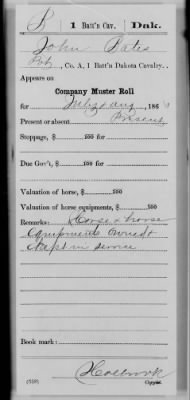 B | 1 Batt'n Cav. | Dak.
John Bates
Pvt, Co. A, 1 Batt'n Dakota Cavalry.
Appears on
Company Muster Roll
for July & Aug, 186
Present or absent Present
Stoppage, $ 100
Due Gov't, $ 100
Valuation of horse, $ 100
Valuation of horse equipments, $ 100
Remarks: Horse & horse
equipments owned &
kept in service
Book mark:
Holbrook
(539) Copyist.